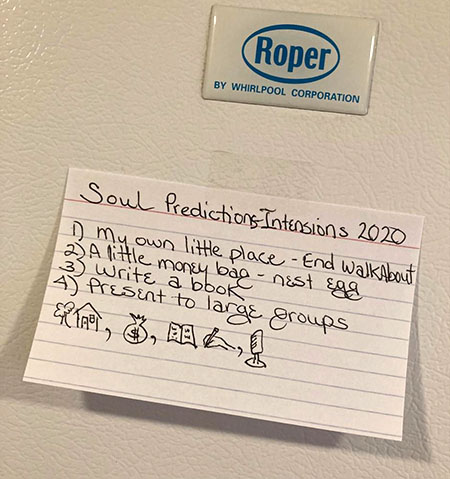 Roper
BY WHIRLPOOL CORPORATION
Soul Predictions-Intensions 2020
1) My own little place - End WalkAbout
2) A little money bag - nest egg
3) Write a book
4) Present to large groups